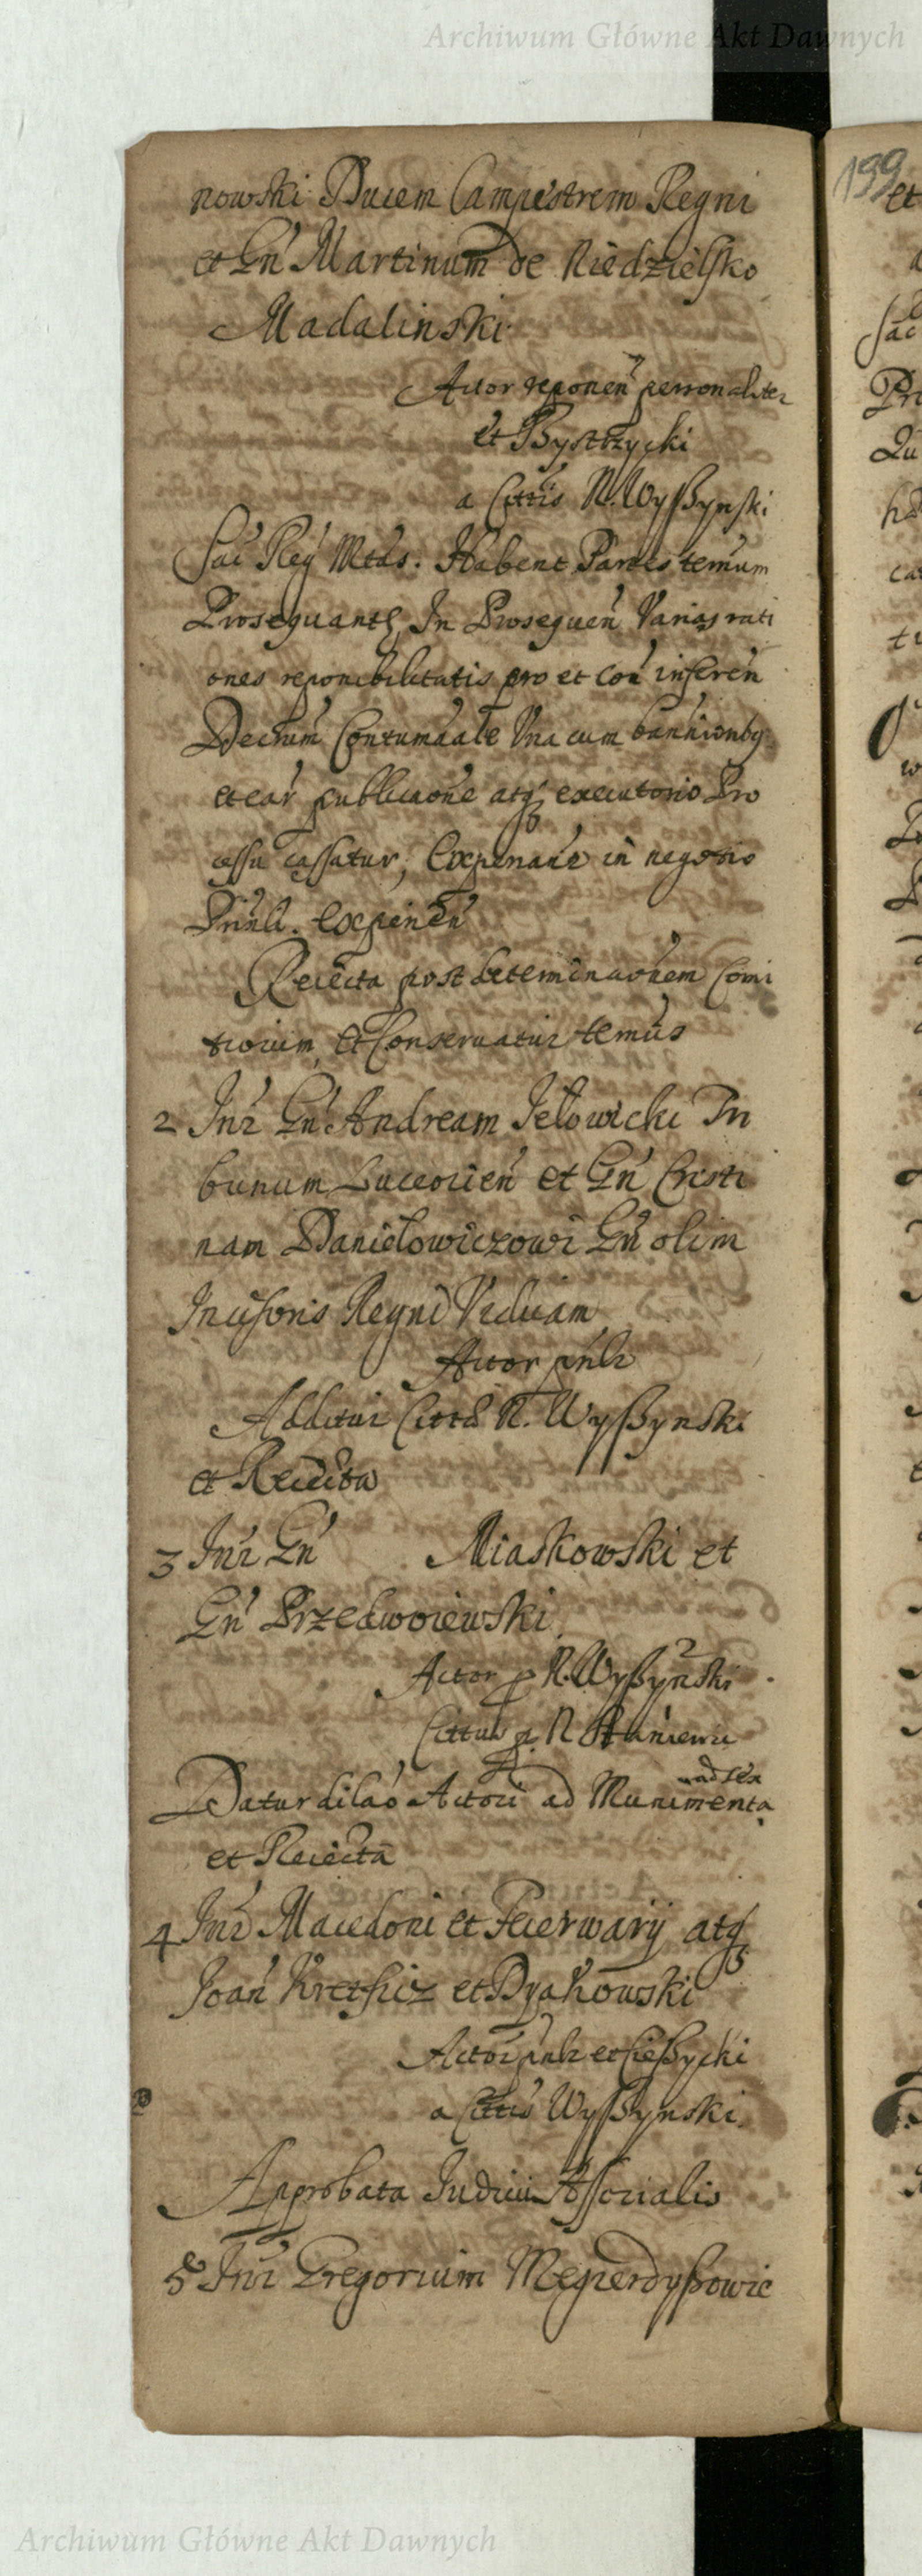 Archiwum Główne Akt Dawnych
nowski Ducem Campestrem Regni
et Gn̄ Martinum de Niedzielsko
Madalinski
Actor reponen̄ personaliter
et Bystrzycki
a Cittis N. Wyszynski
Sac Reg Mtas. Habent Partes termum
Prosequantr In Prosequen̄ Varias rati
ones reponibilitatis pro et con inferen̄
Decrum Contumaciale Una cum bannionibq
et ear publicaone atq executorio Pro
cessu cassatur, Expenanr in negotio
Prinli. expinen̄
Reiecta post determinaonem Comi
tiorum et Conservatur termus
2 Intr Gn̄ Andream Jełowicki Tri
bunum Luceorien̄ et Gn̄ Cristi
nam Daniełowiczowi Gn̄ olim
Incisoris Regni Viduam
Actor pnlr
Additur Citta N. Wyszynski
et Reiecta
3 Intr Gn̄ Miaskowski et
Gn̄ Przedwoiewski
Actor p N. Wyszynski
Cittus p. N
Datur dilao Actori ad Munimenta
et Reiecta
4 Intr Macedoni et Feierwarij atq
Joan̄ Krethicz et Dyakowski
Actor pnlr et Cieszycki
a Cittis Wyszynski
Approbata Judicii Assorialis
5 Intr Gregorium Megierdyszowic
199
Archiwum Główne Akt Dawnych